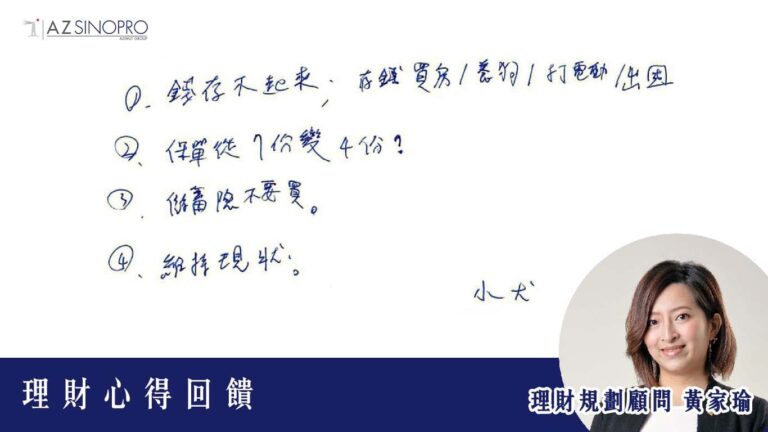 AZ SINOPRO
AZIMUT GROUP
①. 錢存不起來; 存錢買房/養狗/打電動/出國
②. 保單從7份變4份?
③. 儲蓄險不要買。
④. 維持現狀。
小犬
理財心得回饋
理財規劃顧問 黃家瑜